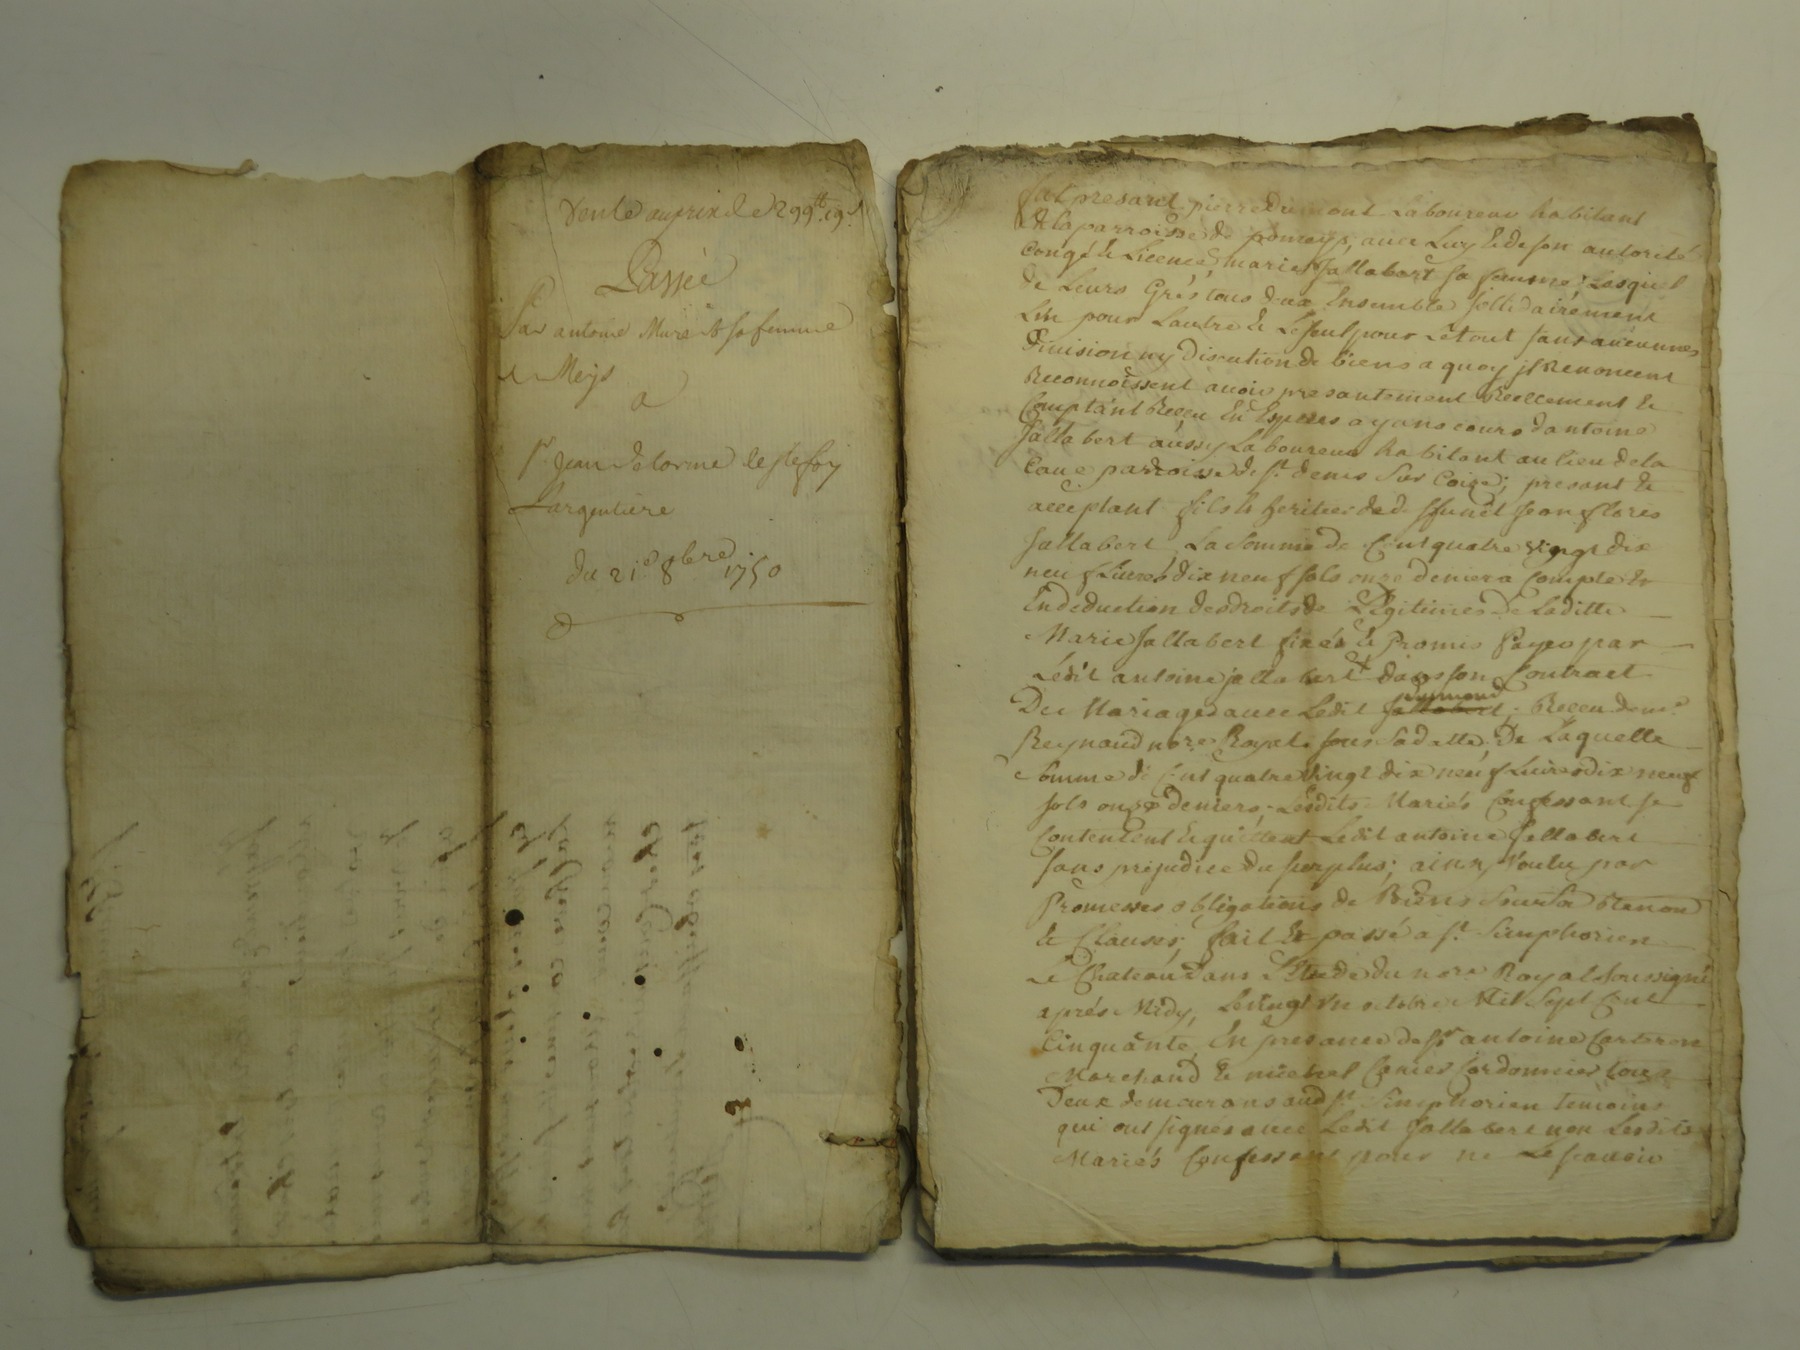 Vente au prix de 299tt 19s
Passée
Par antoine Mure & sa femme
de Meys
a
Sr. Jean Delorme de ste foy
L'argentiere
du 21e 8bre 1750
fut presant pierre Dumont Laboureur habitant
de la parroisse de pomeys, avec Luy & de son autorité
Congé & Licence, marie Jallabert sa femme; Lesquel
de Leurs Grés tous deux Ensemble sollidairement
L'un pour Lautre & Le seul pour Le tout sans aucunnes
Division ny Discution de biens a quoy jls Renoncent
Reconnoissent avoir presantement Reellement &
Comptant Receu En Especes ayans cours dantoine
Jallabert aussy Laboureur habitant au lieu de la
Cave parroisse de st. denis Sur Coize; presant &
acceptant fils & heritier de d. Jean
Jallabert La somme de Cent quatre vingt dix
neuf Livres dix neuf sols onze deniers a Compte &
En deduction des droits de Legitimes de Laditte
Marie Jallabert fixés & Promis Payes par
Ledit antoine jallabert dans son Contract
De Mariage avec Ledit Jallabert dumond; Receu de me.
Reynaud nore. Royal sous sa datte, De Laquelle
somme de Cent quatre vingt dix neuf Livres dix neuf
sols onze deniers, Lesdits Mariés Confessant se
Contentent & quittent Ledit antoine Jallabert
sans prejudice du surplus; ainsy voulu par
Promesses obligations de Biens
& Clauses; fait & passé a st. Simphorien
Le Chateau dans L'Etude du nore Royal soussigné
aprés Midy, Le vingt un octobre Mil Sept Cent
Cinquante, En presance de sr antoine Carteron
Marchand & michel Cordonnier tous
Deux demeurans aud. st. Simphorien temoins
qui ont signés avec Ledit Jallabert non Lesdits
Mariés Confessant pour ne Le sçavoir